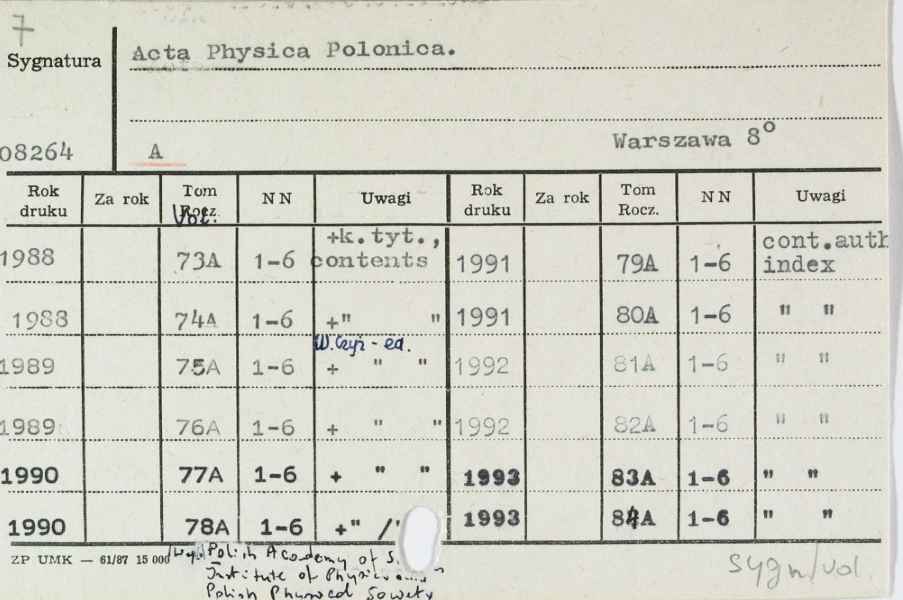 7
Sygnatura Acta Physica Polonica.
08264 A Warszawa 8°
Rok druku Za rok Tom Rocz. Vol. NN Uwagi Rok druku Za rok Tom Rocz. NN Uwagi
1988 73A 1-6 +k.tyt., contents 1991 79A 1-6 cont.auth index
1988 74A 1-6 +" " 1991 80A 1-6 " "
W. Czyż - ed.
1989 75A 1-6 + " " 1992 81A 1-6 " "
1989 76A 1-6 + " " 1992 82A 1-6 " "
1990 77A 1-6 + " " 1993 83A 1-6 " "
1990 78A 1-6 +" /" 1993 84A 1-6 " "
ZP UMK — 61/87 15 000 Polish Academy of S.
Institute of Physics
Polish Physical Society
sygn/vol.